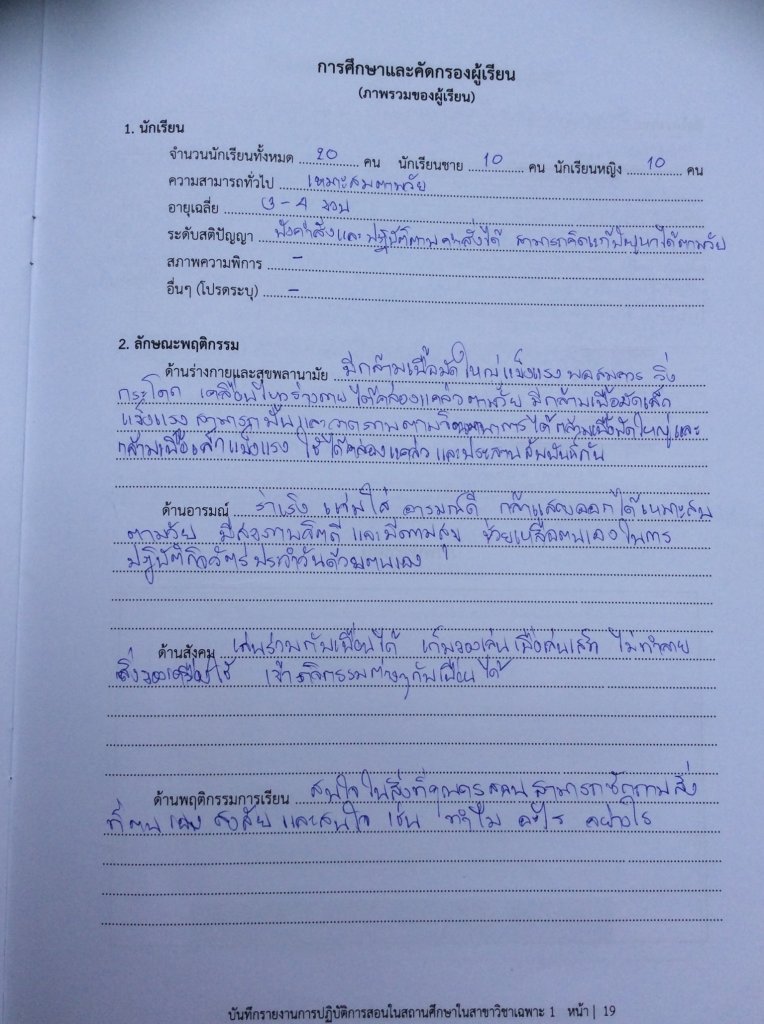 การศึกษาและคัดกรองผู้เรียน
(ภาพรวมของผู้เรียน)
1. นักเรียน
จำนวนนักเรียนทั้งหมด 20 คน นักเรียนชาย 10 คน นักเรียนหญิง 10 คน
ความสามารถทั่วไป เหมาะสมตามวัย
อายุเฉลี่ย 3 - 4 ขวบ
ระดับสติปัญญา ฟังคำสั่งและปฏิบัติตามคำสั่งได้ สามารถคิดแก้ปัญหาได้ตามวัย
สภาพความพิการ -
อื่นๆ (โปรดระบุ) -
2. ลักษณะพฤติกรรม
ด้านร่างกายและสุขพลานามัย มีกล้ามเนื้อมัดใหญ่แข็งแรง พอสมควร วิ่ง
กระโดด เคลื่อนไหวร่างกายได้คล่องแคล่วตามวัย มีกล้ามเนื้อมัดเล็ก
แข็งแรง สามารถปั้นและวาดภาพตามจินตนาการได้ กล้ามเนื้อมัดใหญ่และ
กล้ามเนื้อเล็กแข็งแรง ใช้ได้คล่องแคล่ว และประสานสัมพันธ์กัน
ด้านอารมณ์ ร่าเริง แจ่มใส อารมณ์ดี กล้าแสดงออกได้เหมาะสม
ตามวัย มีสุขภาพจิตดี และมีความสุข ช่วยเหลือตนเองในการ
ปฏิบัติกิจวัตรประจำวันด้วยตนเอง
ด้านสังคม เล่นร่วมกับเพื่อนได้ เก็บของเล่นเมื่อเล่นเสร็จ ไม่ทำลาย
สิ่งของเครื่องใช้ เข้ากิจกรรมต่างๆกับเพื่อนได้
ด้านพฤติกรรมการเรียน สนใจในสิ่งที่คุณครูสอน สามารถซักถามสิ่ง
ที่ตนเองสงสัยและสนใจ เช่น ทำไม อะไร อย่างไร
บันทึกรายงานการปฏิบัติการสอนในสถานศึกษาในสาขาวิชาเฉพาะ 1 หน้า | 19